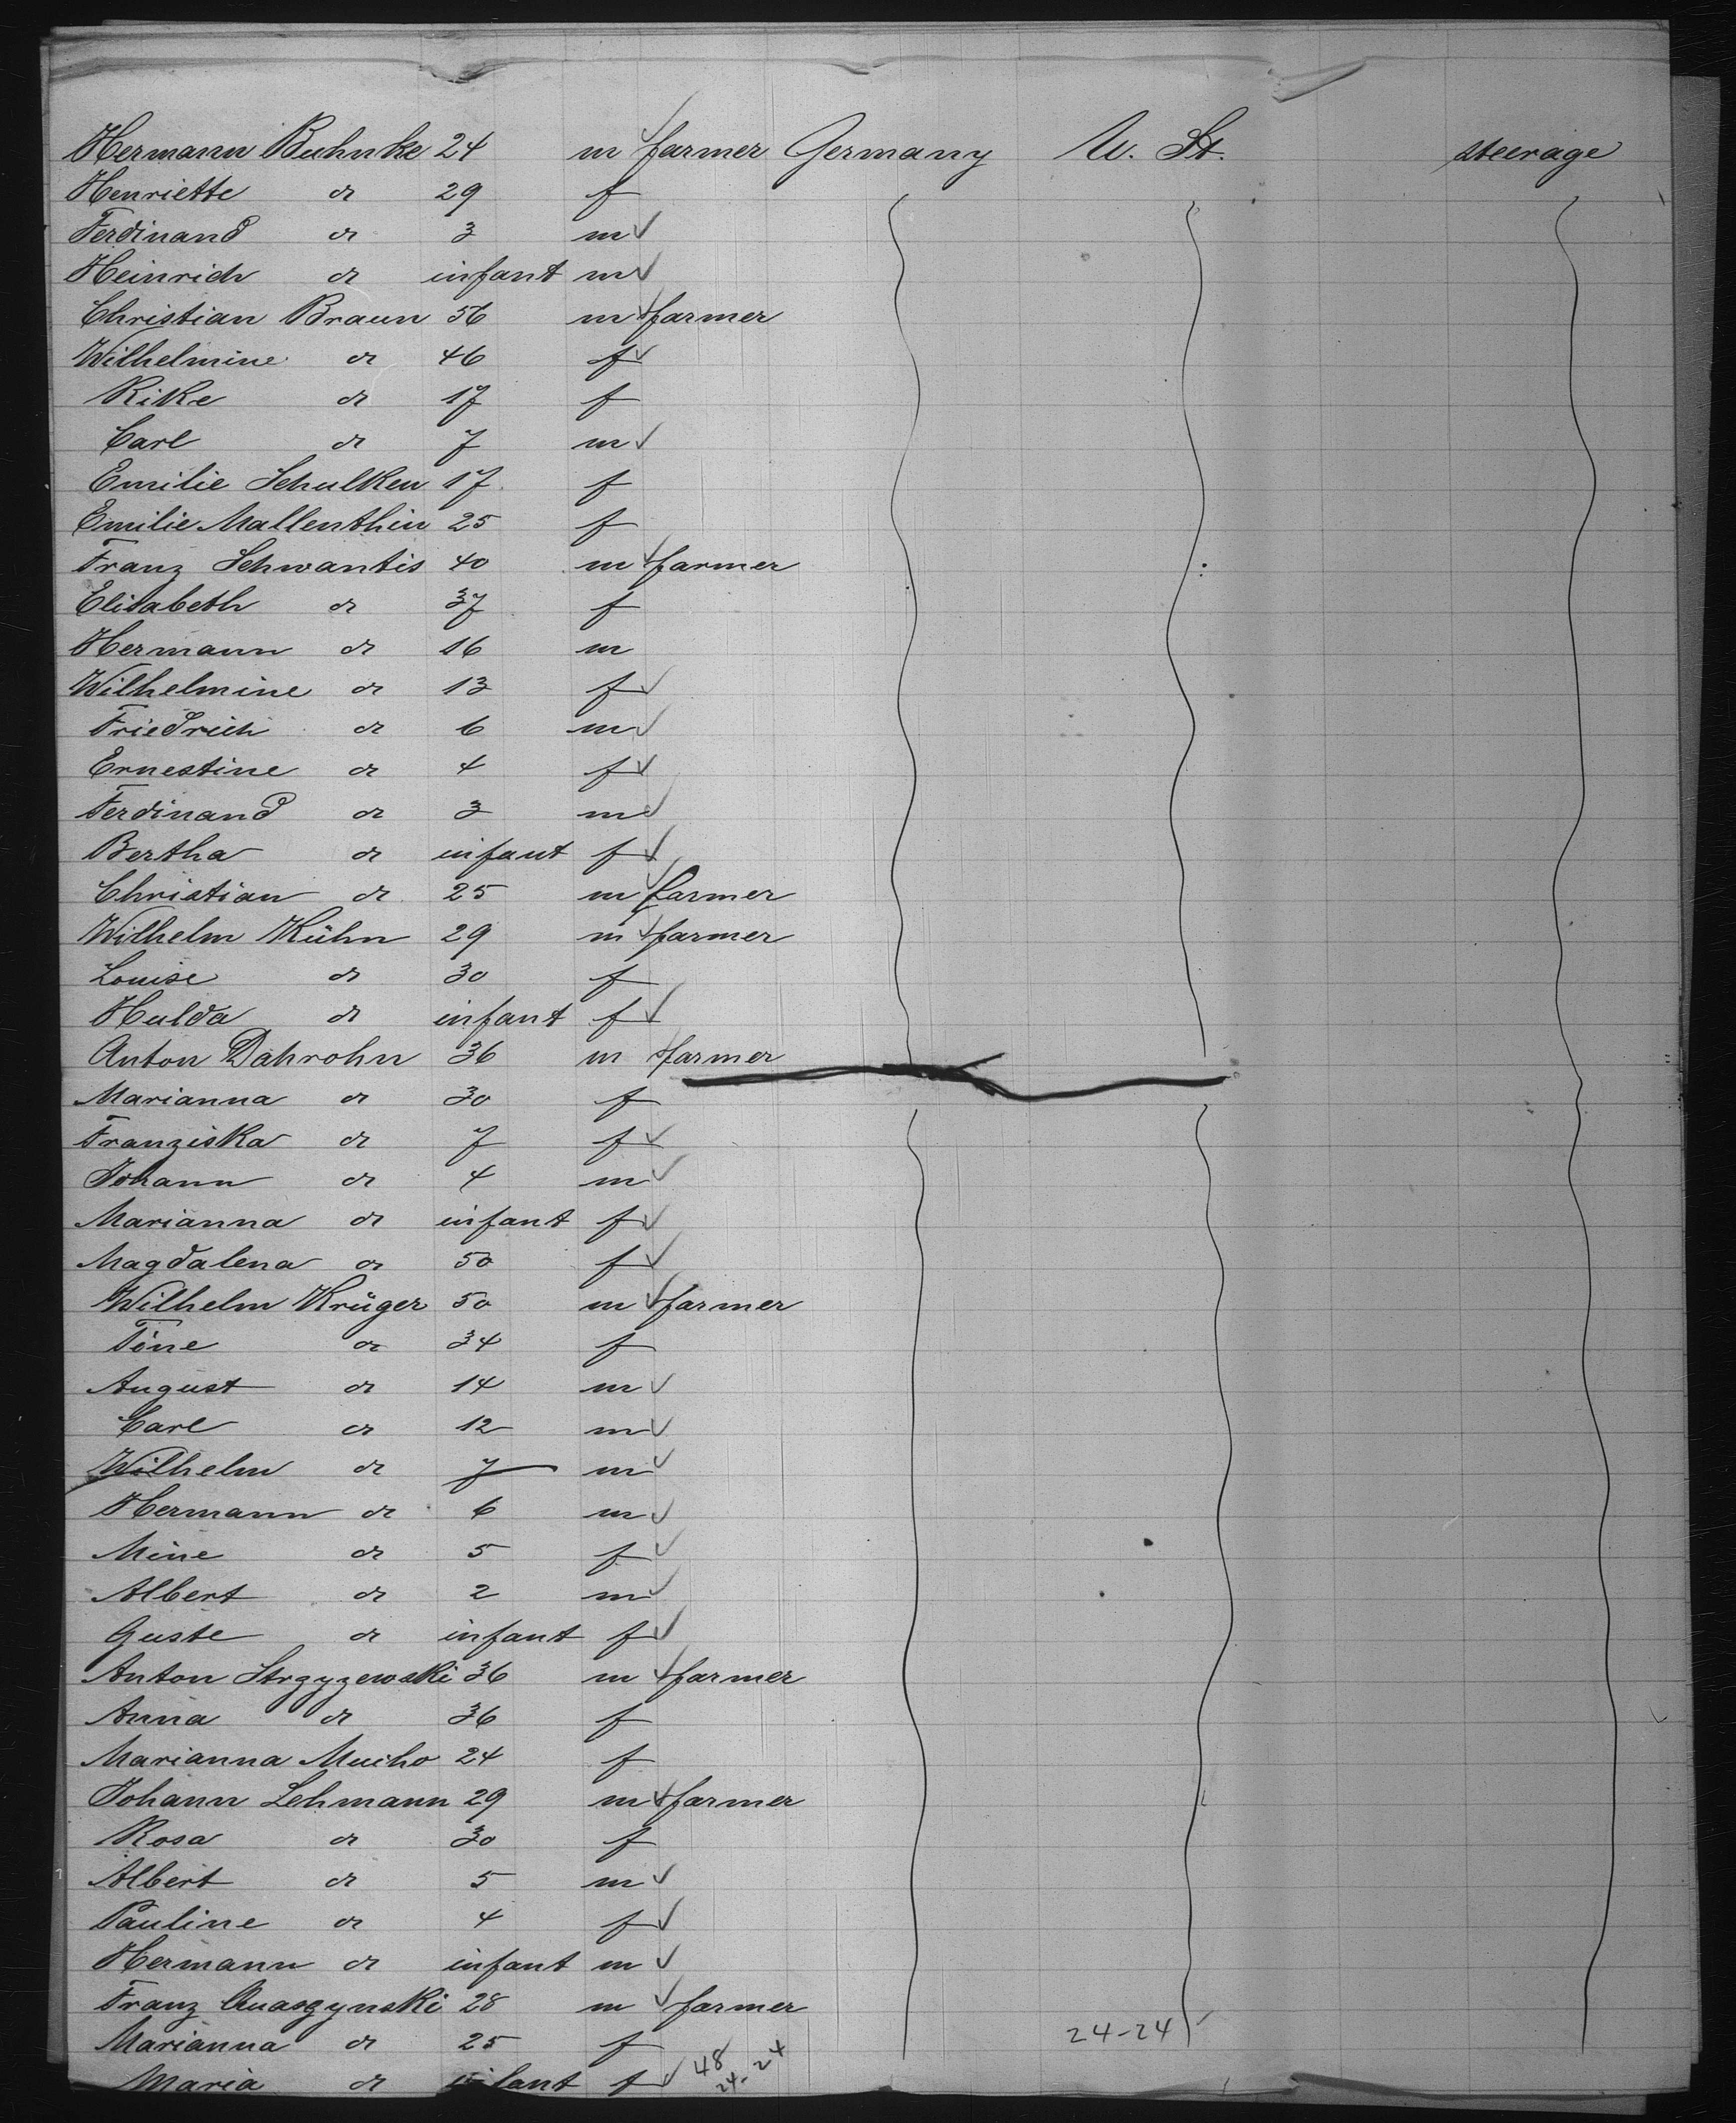 Hermann Buhnke 24 m farmer Germany U. St. steerage
Henriette do 29 f
Ferdinand do 3 m
Heinrich do infant m
Christian Braun 56 m farmer
Wilhelmine do 46 f
Rike do 17 f
Carl do 7 m
Emilie Schulken 17 f
Emilie Mallenthin 25 f
Franz Schwantis 40 m farmer
Elisabeth do 37 f
Hermann do 16 m
Wilhelmine do 13 f
Friedrich do 6 m
Ernestine do 4 f
Ferdinand do 3 m
Bertha do infant f
Christian do 25 m farmer
Wilhelm Kühn 29 m farmer
Louise do 30 f
Hulda do infant f
Anton Dahrohn 36 m farmer
Marianna do 30 f
Franziska do 7 f
Johann do 4 m
Marianna do infant f
Magdalena do 50 f
Wilhelm Krüger 50 m farmer
Tine do 34 f
August do 14 m
Carl do 12 m
Wilhelm do 7 m
Hermann do 6 m
Mine do 5 f
Albert do 2 m
Guste do infant f
Anton Strzyzewski 36 m farmer
Anna do 36 f
Marianna Mucho 24 f
Johann Lehmann 29 m farmer
Rosa do 30 f
Albert do 5 m
Pauline do 4 f
Hermann do infant m
Franz Quaszynski 28 m farmer
Marianna do 25 f 24-24
Maria do infant f 48 24-24